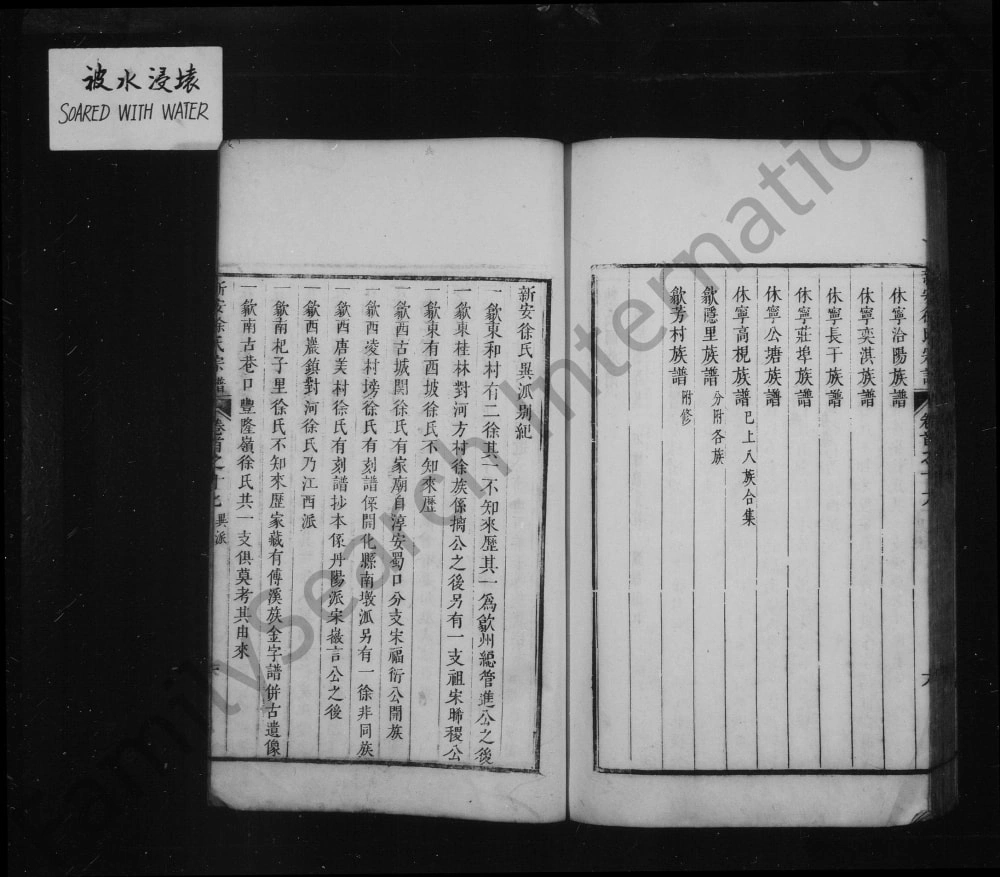 被水浸壊
SOARED WITH WATER
休寧洽陽族譜
休寧奕淇族譜
休寧長干族譜
休寧莊埠族譜
休寧公塘族譜
休寧高梘族譜 已上八族合集
歙隱里族譜 分附各族
歙芳村族譜 附修
新安徐氏異派別紀
一歙東和村有二徐其一不知來歷其一爲歙州總管進公之後
一歙東桂林對河方村徐族係摛公之後另有一支祖宋晞稷公
一歙東有酉坡徐氏不知來歷
一歙西古城關徐氏有家廟自淳安蜀口分支宋福衍公開族
一歙西凌村塝徐氏有刻譜係開化縣南墩派另有一徐非同族
一歙西唐美村徐氏有刻譜抄本係丹陽派宋嶶言公之後
一歙西巖鎮對河徐氏乃江西派
一歙南杞子里徐氏不知來歷家藏有傅溪族金字譜併古遺像
一歙南古巷口豐隆嶺徐氏共一支俱莫考其由來
新安徐氏宗譜 卷首之十七 異派
FamilySearch International